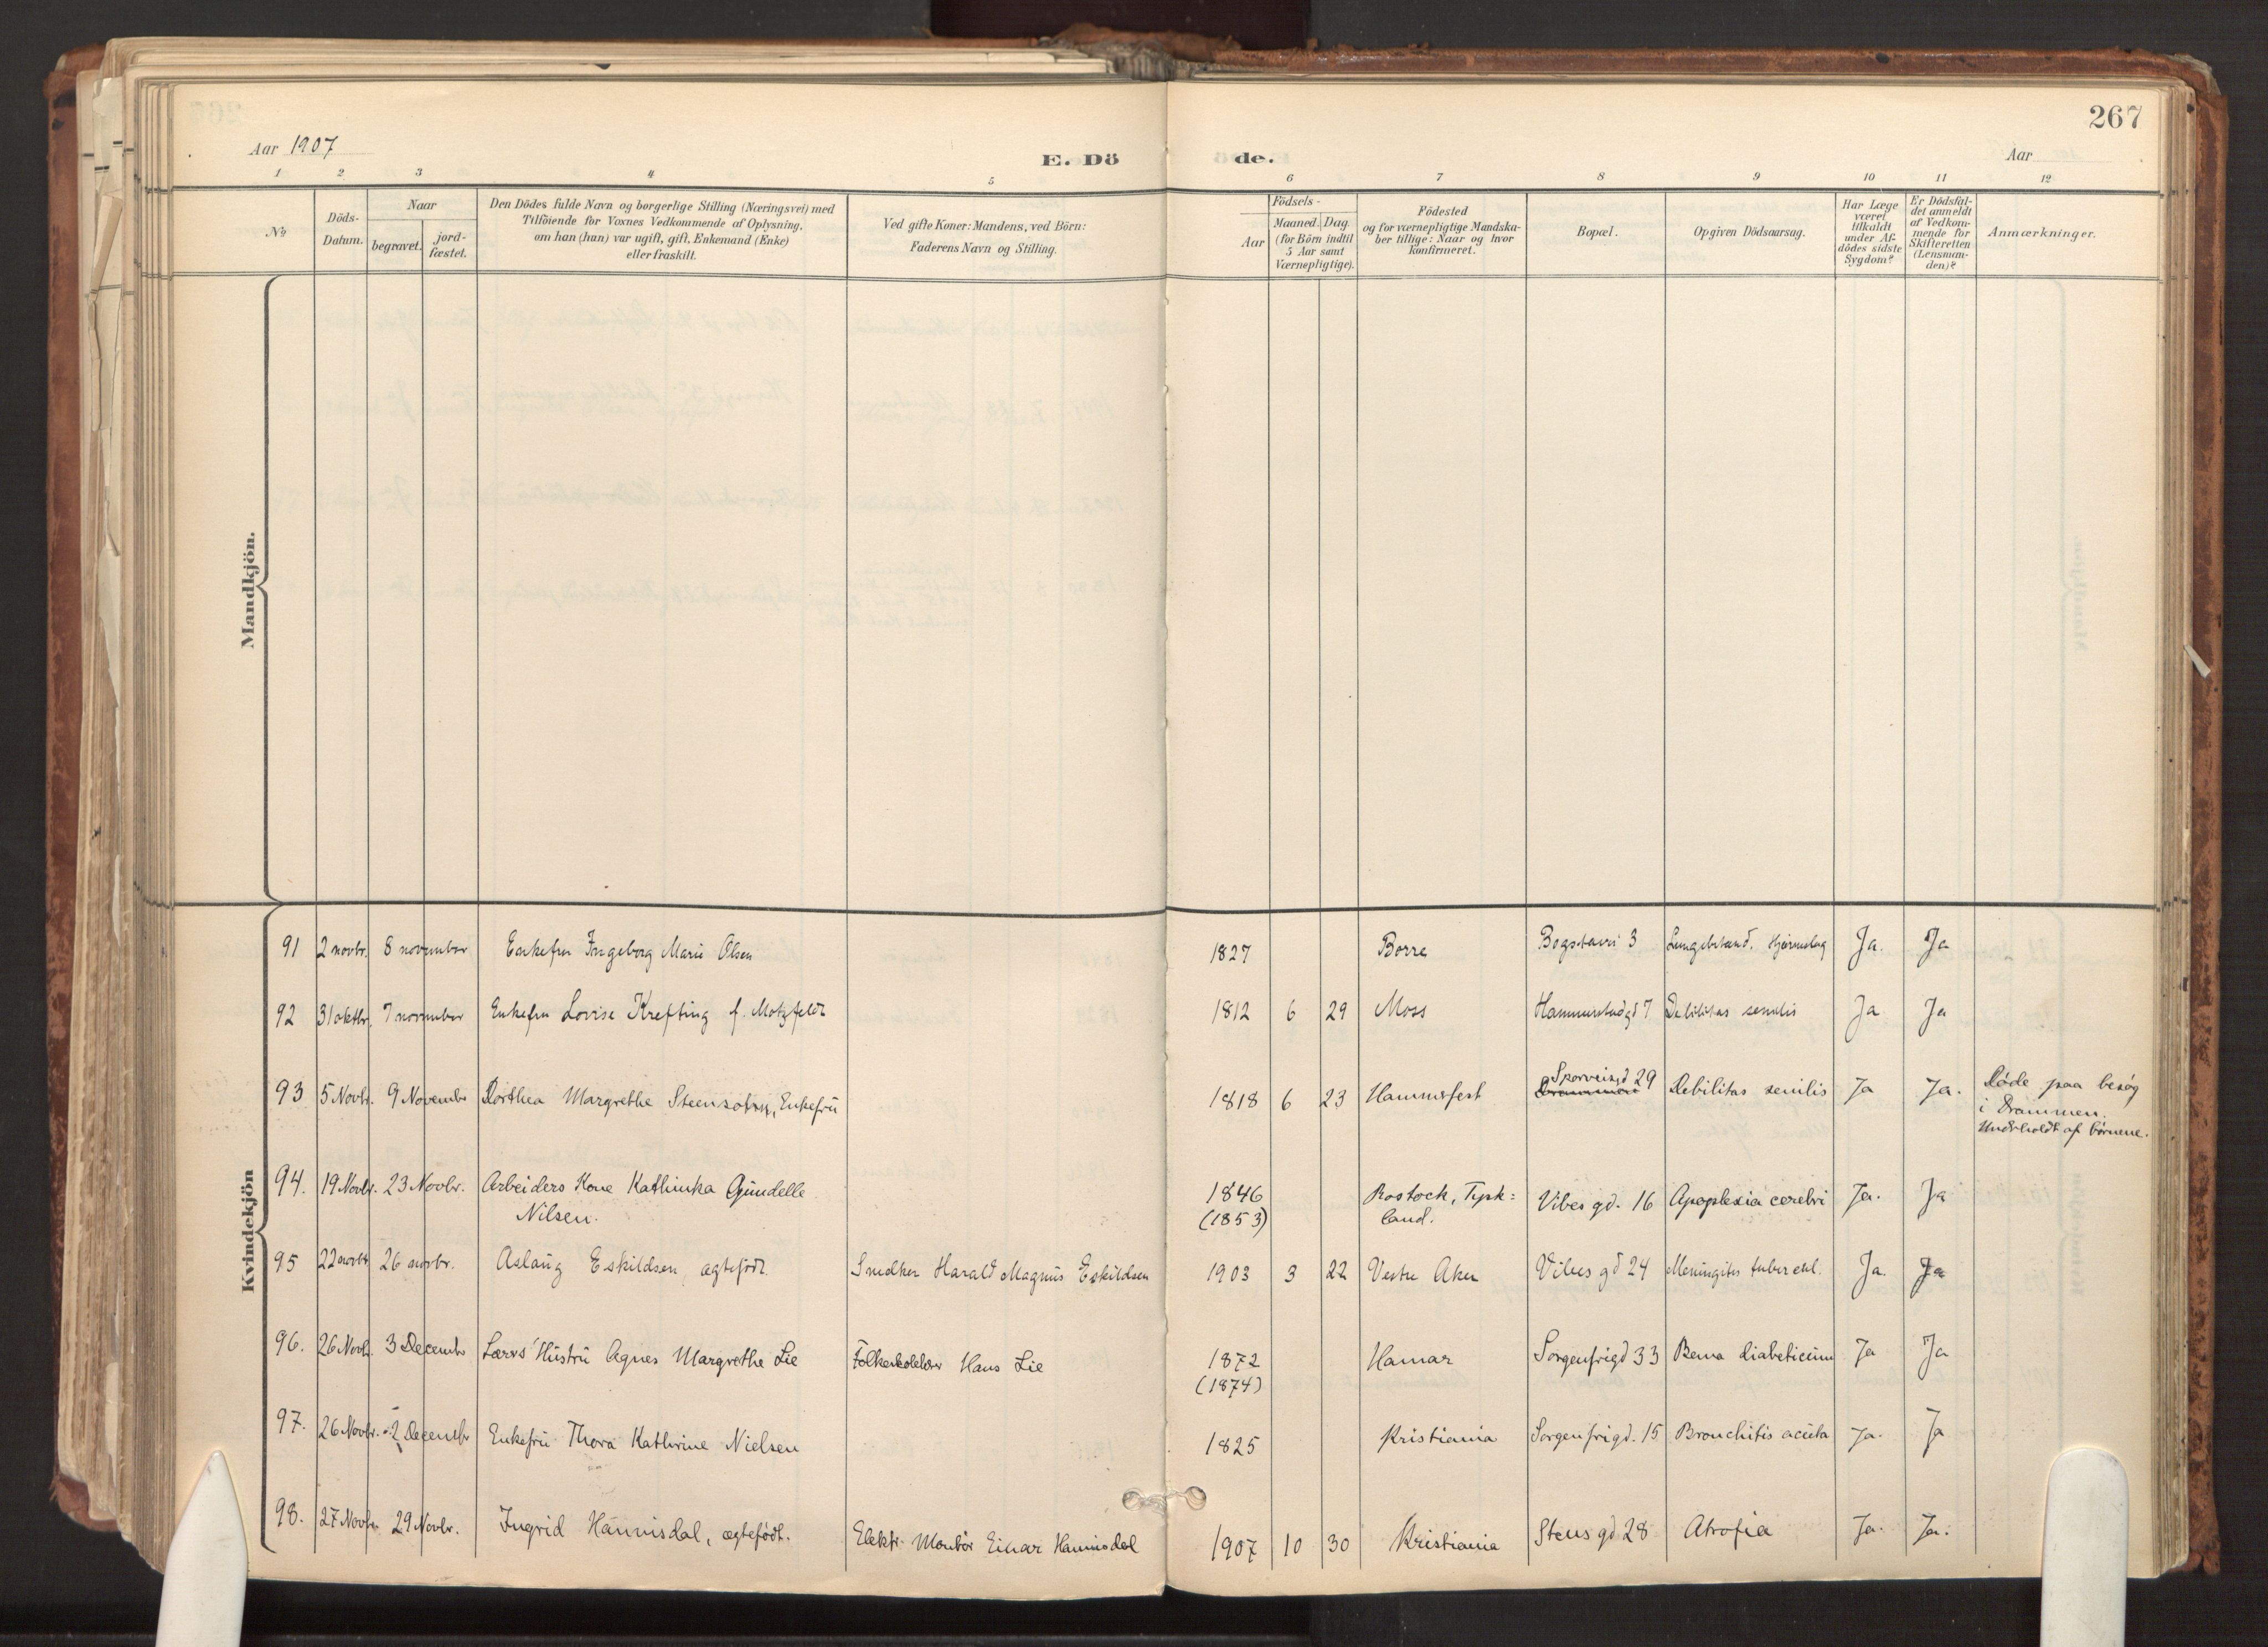 267
Aar 1907
E. Dö
de.
Aar
1 2 3 4 5 6 7 8 9 10 11 12
No
Döds-
Datum.
Naar
begravet.
jord-
fæstet.
Den Dödes fulde Navn og borgerlige Stilling (Næringsvei) med
Tilföiende for Voxnes Vedkommende af Oplysning,
om han (hun) var ugift, gift, Enkemand (Enke)
eller fraskilt.
Ved gifte Koner: Mandens, ved Börn:
Faderens Navn og Stilling.
Födsels-
Aar
Maaned.
Dag.
(for Börn indtil
5 Aar samt
Værnepligtige).
Födested
og for værnepligtige Mandska-
ber tillige: Naar og hvor
konfirmeret.
Bopæl.
Opgiven Dödsaarsag.
Har Læge
været
tilkaldt
under Af-
dödes sidste
Sygdom?
Er Dödsfal-
det anmeldt
af Vedkom-
mende for
Skifteretten
(Lensman-
den)?
Anmærkninger.
Mandkjön.
Kvindekjön
91 2 novbr. 8 november Enkefru Ingeborg Marie Olsen 1827 Borre Bogstavei 3 Lungebetænd. Hjerneslag Ja. Ja
92 31 oktbr. 7 november Enkefru Lovise Krefting f. Motzfeldt 1812 6 29 Moss Hammerstadgd 7 Debilitas senilis Ja Ja
93 5 Novbr. 9 Novembr Dorthea Margrethe Steensohn, Enkefru 1818 6 23 Hammerfest Sporveisgd 29 Debilitas senilis Ja Ja. Döde paa besög
Drammen
i Drammen.
Underholdt af börnene.
94. 19 Novbr. 23 Novbr. Arbeiders Kone Kathinka Gundelle 1846 Rostock, Tysk= Vibes gd. 16 Apoplexia cerebri Ja. Ja
Nilsen. (1853) land.
95 22 novbr 26 novbr. Aslaug Eskildsen ægtefödt. Snedker Harald Magnus Eskildsen 1903 3 22 Vestre Aker Vibes gd 24 Meningitis tubercul. Ja. Ja
96. 26 Novb. 3 Decembr Lærers Hustru Agnes Margrethe Lie Folkeskolelærer Hans Lie 1872 Hamar Sorgenfrigd 33 diabeticum Ja Ja
(1874)
97. 26 Novbr. 2 Decembr Enkefru Thora Kathrine Nielsen 1825 Kristiania Sorgenfrigd. 15 Bronchitis acuta Ja. Ja
98. 27 Novbr. 29 Novbr. Ingrid Hannisdal, ægtefödt. Elektr. Montör Einar Hannisdal 1907 10 30 Kristiania Stens gd 28 Atrofia Ja. Ja.